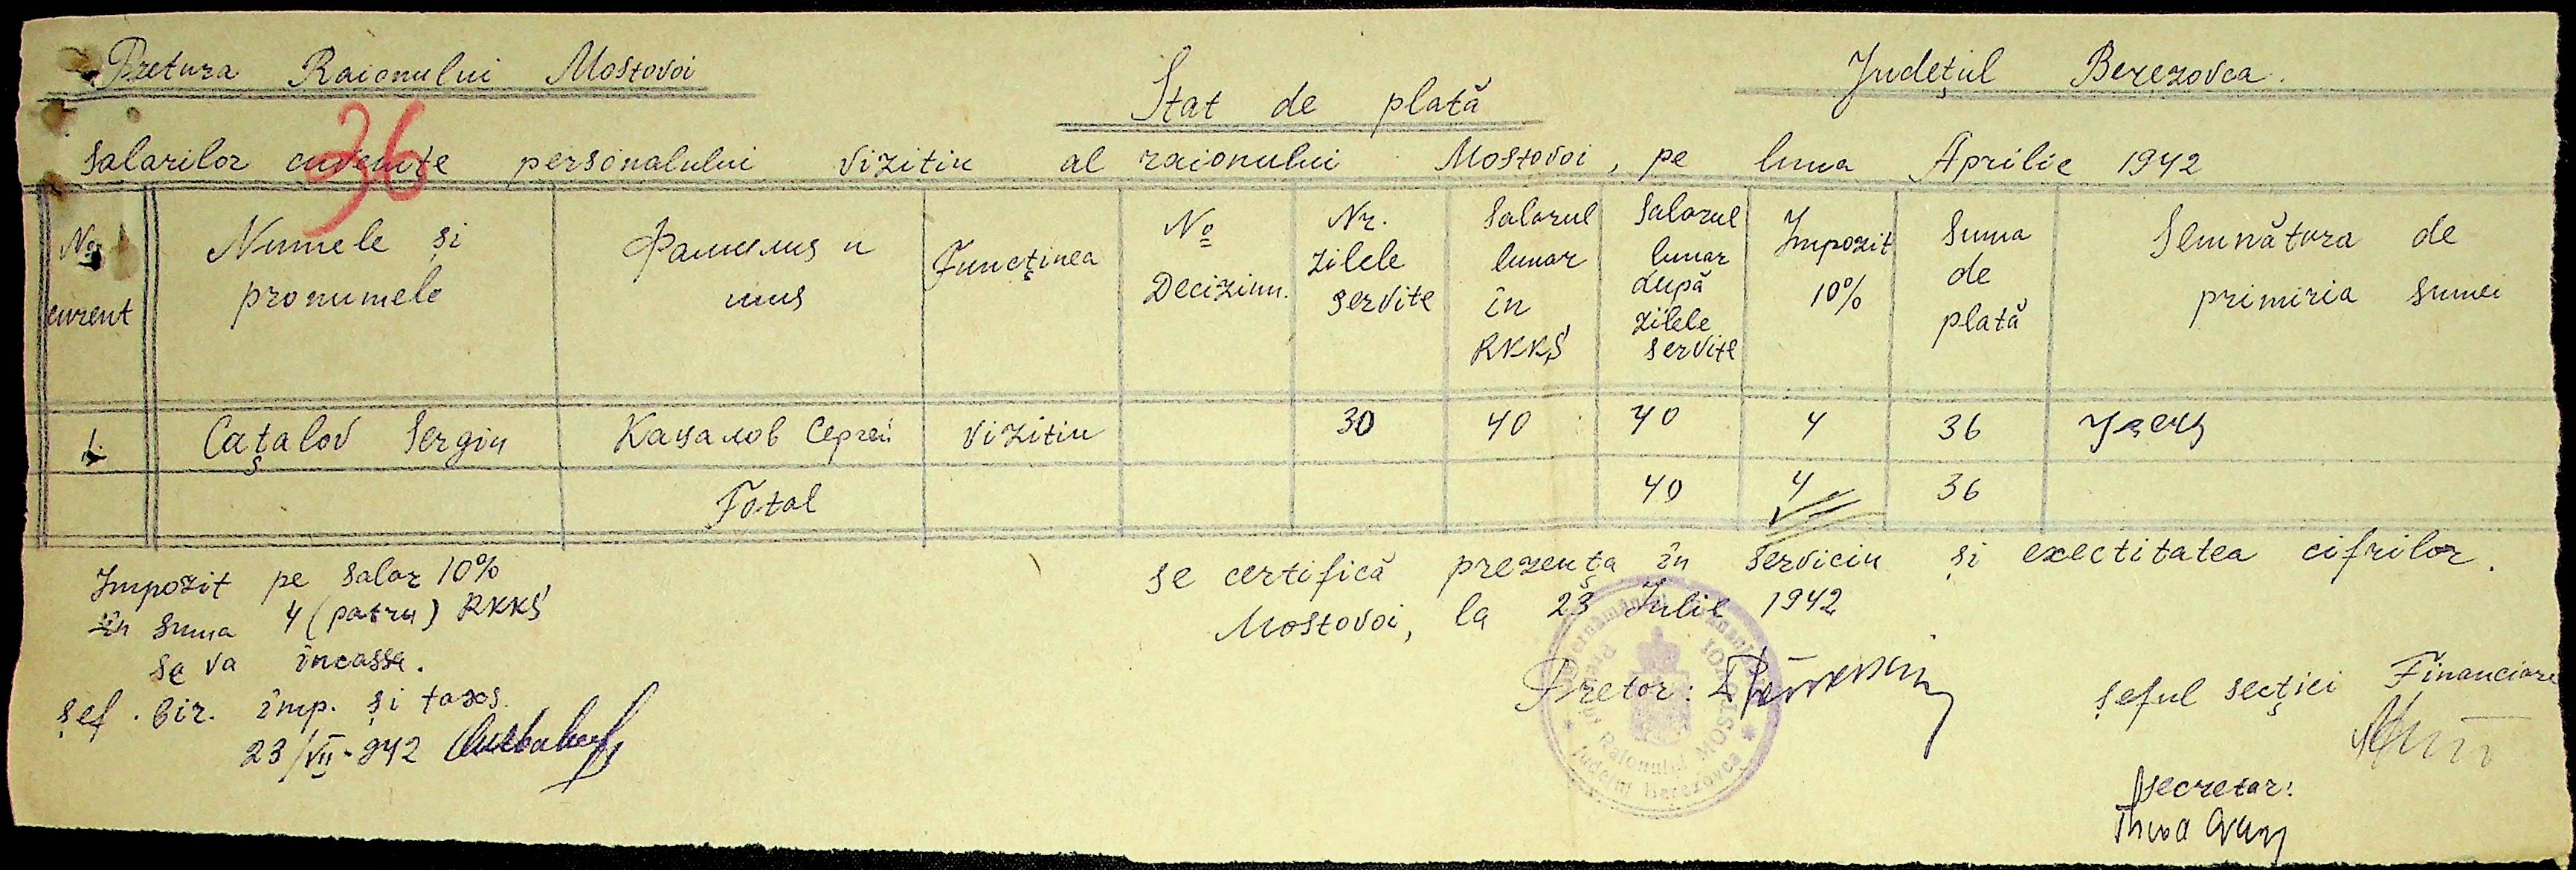 Pretura Raionului Mostovoi
Județul Berezovca.
Stat de plată
36
salarilor cuvenite personalului vizitiu al raionului Mostovoi, pe luna Aprilie 1942
No curent
Numele și pronumele
Фамилия и имя
Funcținea
No Deciziun.
Nr. zilele servite
Salarul lunar în RKKS
Salarul lunar după zilele servite
Impozit 10%
Suma de plată
Semnătura de primiria sumei
1. Cațalov Sergiu Кацалов Сергей vizitiu 30 40 40 4 36
Total 40 4 36
Impozit pe salar 10%
în suma 4 (patru) RKKS
se va încassa.
șef. bir. imp. și taxes.
23/VII-942
se certifică prezența în serviciu și exectitatea cifrilor.
Mostovoi, la 23 Julie 1942
Pretor:
Guvernământul Transnistriei
Pretura Raionului MOSTOVOI
* Județul Berezovca *
șeful secției Financiare
secretar: